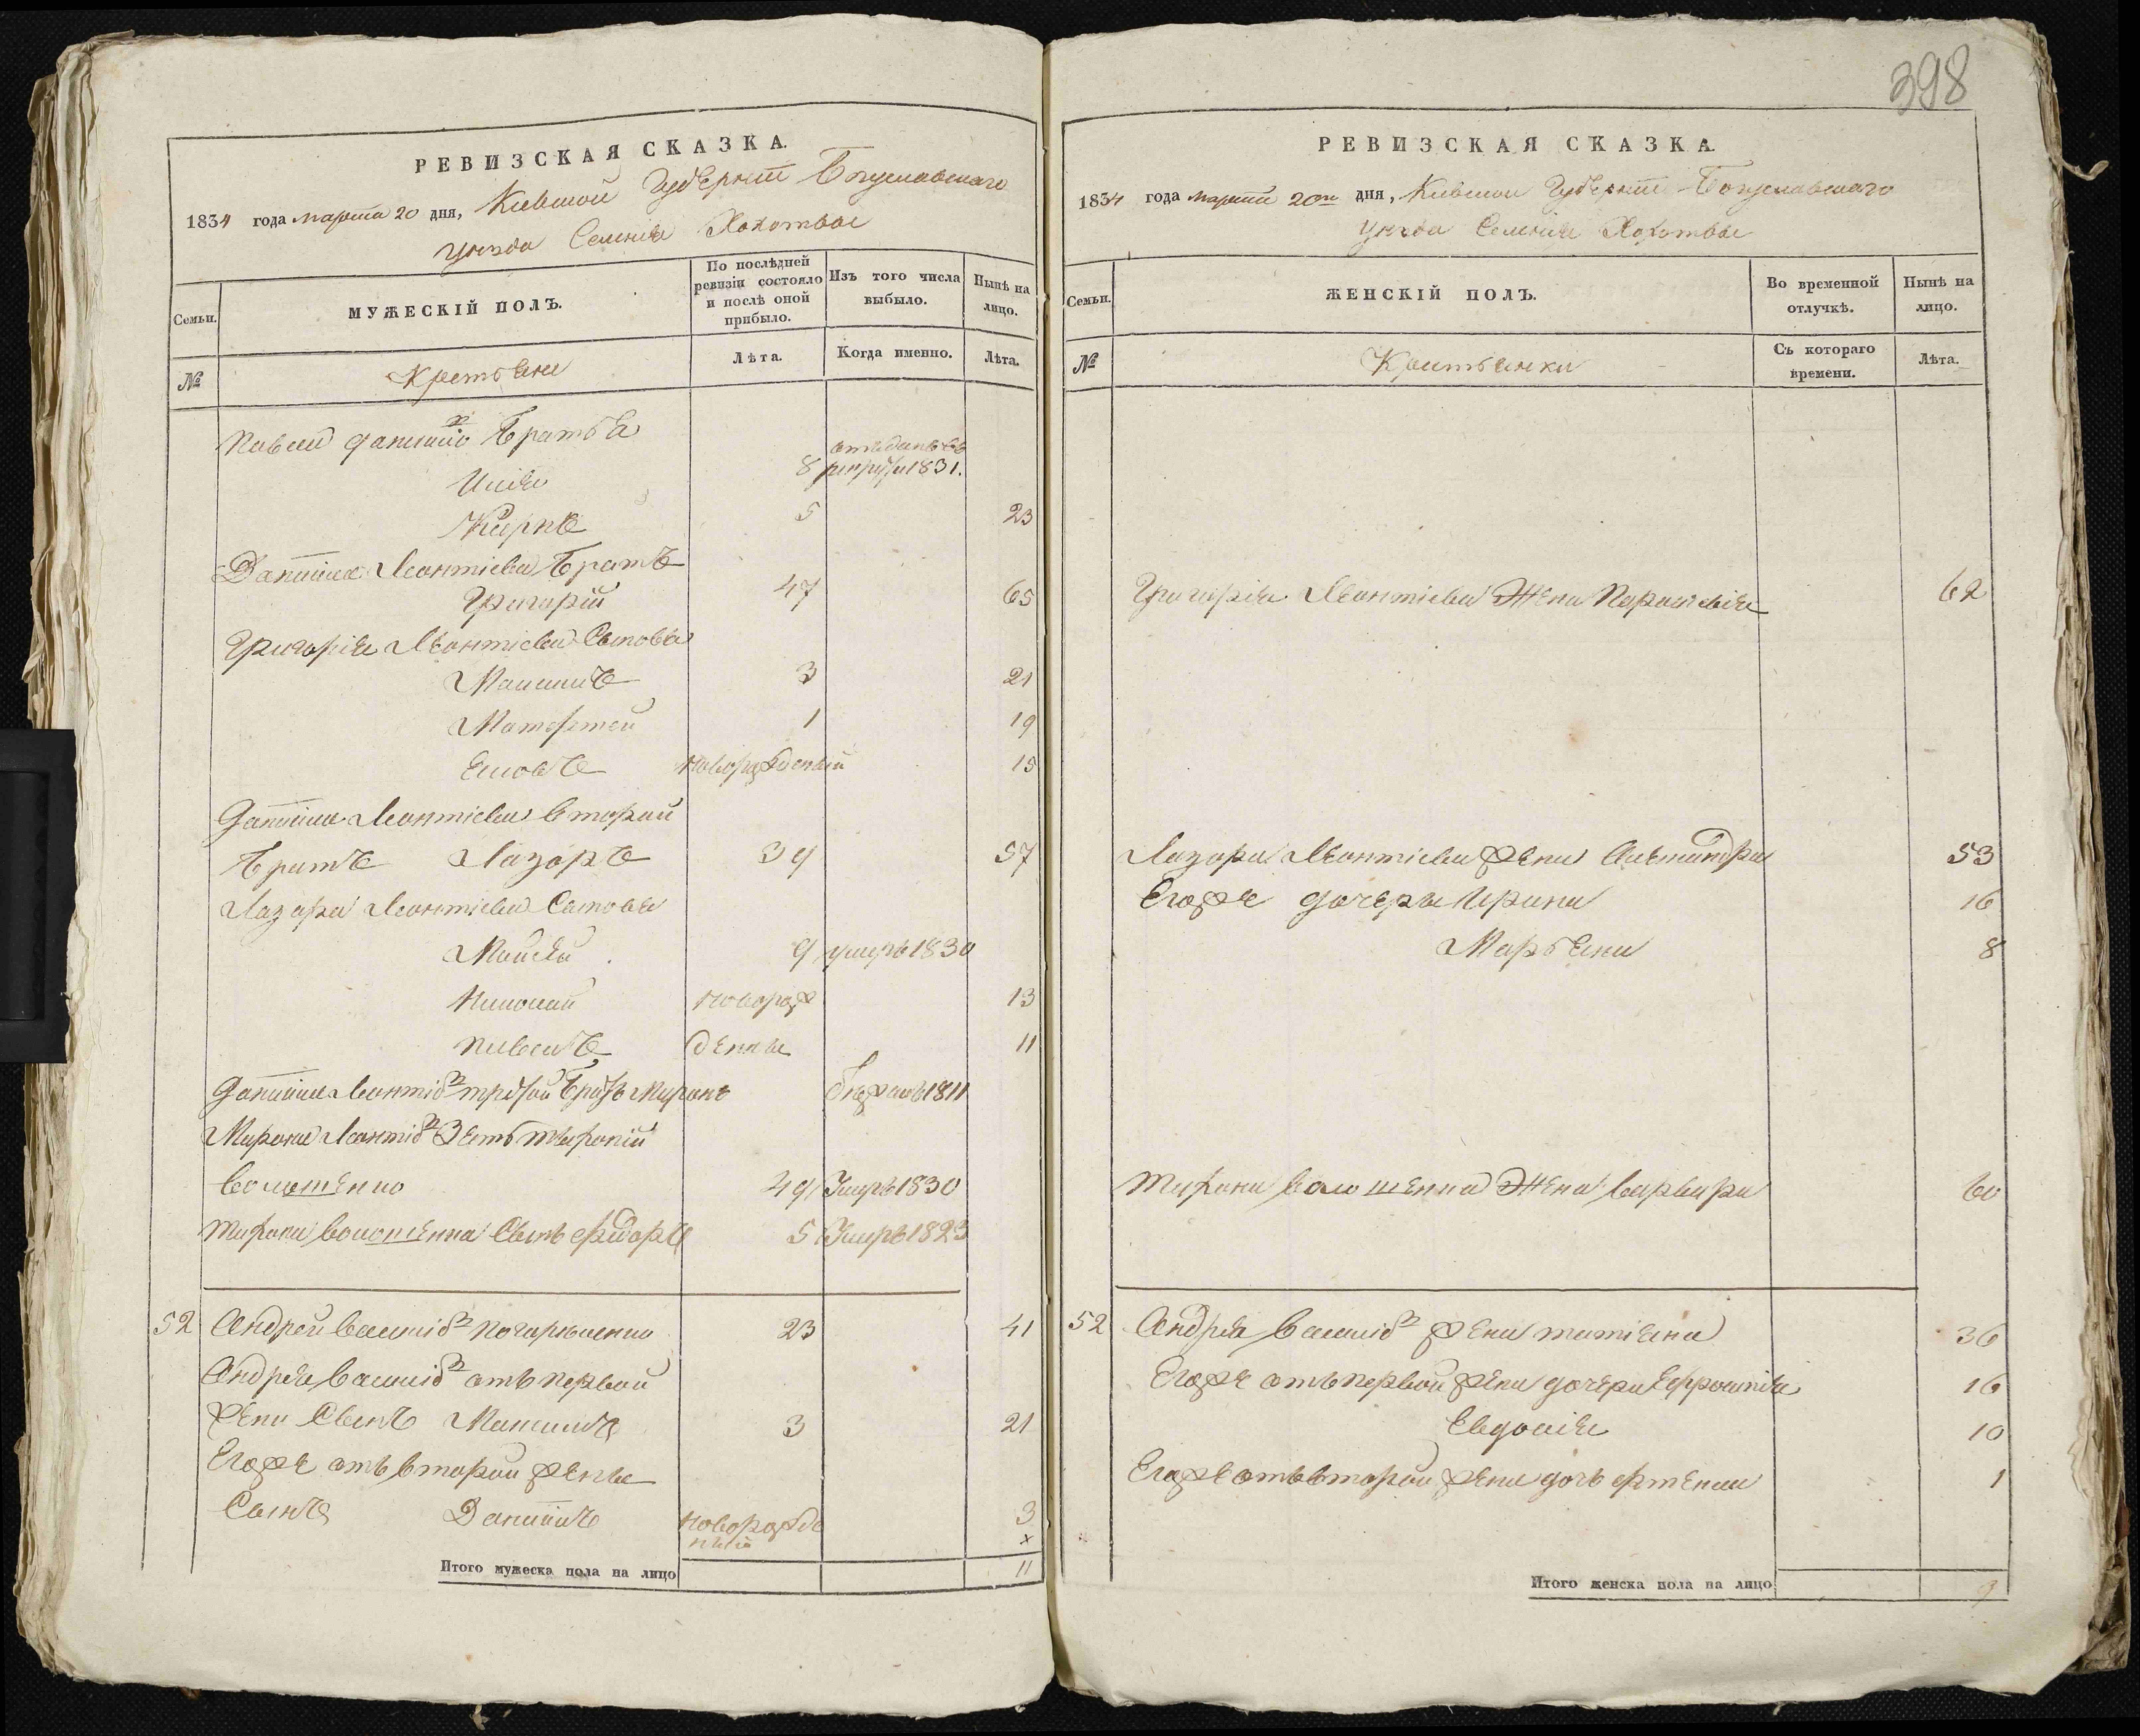 РЕВИЗСКАЯ СКАЗКА.
1834 года марта 20 дня, Киевской Губернии Богуславскаго
уѣзда Селения Хохотвы
Семьи. МУЖЕСКІЙ ПОЛЪ. По послѣдней ревизіи состояло и послѣ оной прибыло. Изъ того числа выбыло. Нынѣ на лицо.
№ Крестьяне Лѣта. Когда именно. Лѣта.
Братья
8 отъданъ въ рекруты 1831.
5 23
Данiила Леонтіева Братъ
Григорій 47 65
Григорія Леонтіева Сыновья
Максимъ 3 21
Матфтей 1 19
новорожденный 15
Данiила Леонтіева второй
братъ Лазоръ 39 57
Лазора Леонтіева Сыновья
Мойсей 9 умеръ 1830
Николай новорож 13
денные 11
Данiила Леонтіева третой Братъ Миронъ бѣжалъ 1811
Мирона Леонтіева Зять
Волошенко 49 Умеръ 1830
Волошенка Сынъ Фтодоръ 5 Умеръ 1823
52 Андрей Василіевъ 23 41
Андрея Василіева отъ первой
жены Сынъ Максимъ 3 21
Егоже отъ второй жены
Сынъ Даниилъ новорожде
нный 3
х
Итого мужеска пола на лицо 11
398
РЕВИЗСКАЯ СКАЗКА.
1834 года марта 20го дня, Киевской Губернии Богуславскаго
уѣзда Селения Хохотвы
Семьи. ЖЕНСКІЙ ПОЛЪ. Во временной отлучкѣ. Нынѣ на лицо.
№ Крестьянки Съ котораго времени. Лѣта.
Григорія Леонтіева Жена Параскевія 62
Лазора Леонтіева жена Александра 53
Егоже дочеры Ирина 16
Марьяна 8
Волошенка Жена Варвара 60
52 Андрея Василіева жена татіяна 36
Егоже отъ первой жены дочери Ефросинія 16
Евдокія 10
Егоже отъ второй жены дочь 1
Итого женска пола на лицо 9